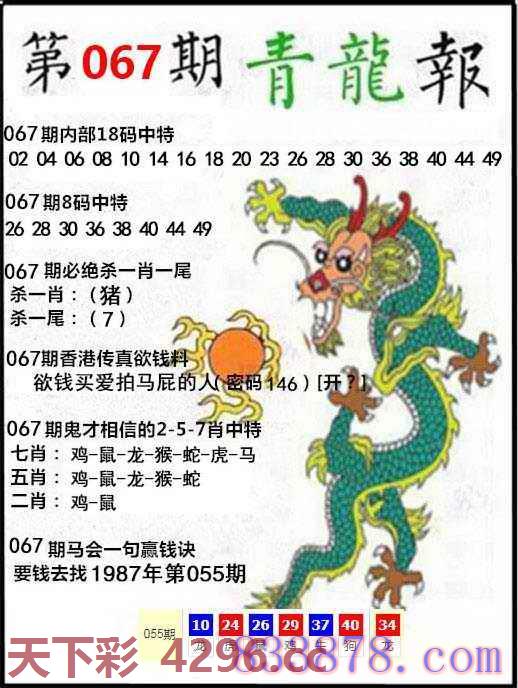 第067期青龍報
067期内部18码中特
02 04 06 08 10 14 16 18 20 23 26 28 30 36 38 40 44 49
067期8码中特
26 28 30 36 38 40 44 49
067期必绝杀一肖一尾
杀一肖：（猪）
杀一尾：（7）
067期香港传真欲钱料
欲钱买爱拍马屁的人（密码146）[开？]
067期鬼才相信的2-5-7肖中特
七肖：鸡-鼠-龙-猴-蛇-虎-马
五肖：鸡-鼠-龙-猴-蛇
二肖：鸡-鼠
067期马会一句赢钱诀
要钱去找1987年第055期
055期 10 24 26 29 37 40 34
龙 虎 鸡 牛 狗 龙
天下彩 4296.cc
838878.com